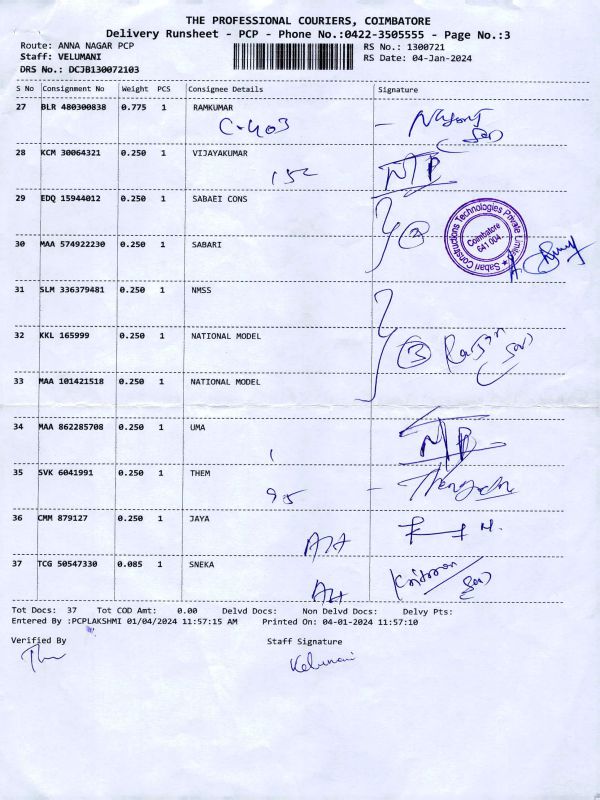 THE PROFESSIONAL COURIERS, COIMBATORE
Delivery Runsheet - PCP - Phone No.:0422-3505555 - Page No.:3
Route: ANNA NAGAR PCP RS No.: 1300721
Staff: VELUMANI RS Date: 04-Jan-2024
DRS No.: DCJB130072103
S No Consignment No Weight PCS Consignee Details Signature
27 BLR 480300838 0.775 1 RAMKUMAR
C-403
28 KCM 30064321 0.250 1 VIJAYAKUMAR
152
29 EDQ 15944012 0.250 1 SABAEI CONS
2
Sabari Constructions Technologies Private Limited
Coimbatore
641 004.
30 MAA 574922230 0.250 1 SABARI
31 SLM 336379481 0.250 1 NMSS
32 KKL 165999 0.250 1 NATIONAL MODEL
3
33 MAA 101421518 0.250 1 NATIONAL MODEL
34 MAA 862285708 0.250 1 UMA
35 SVK 6041991 0.250 1 THEM
95
36 CMM 879127 0.250 1 JAYA
37 TCG 50547330 0.085 1 SNEKA
Tot Docs: 37 Tot COD Amt: 0.00 Delvd Docs: Non Delvd Docs: Delvy Pts:
Entered By :PCPLAKSHMI 01/04/2024 11:57:15 AM Printed On: 04-01-2024 11:57:10
Verified By Staff Signature
Velumani